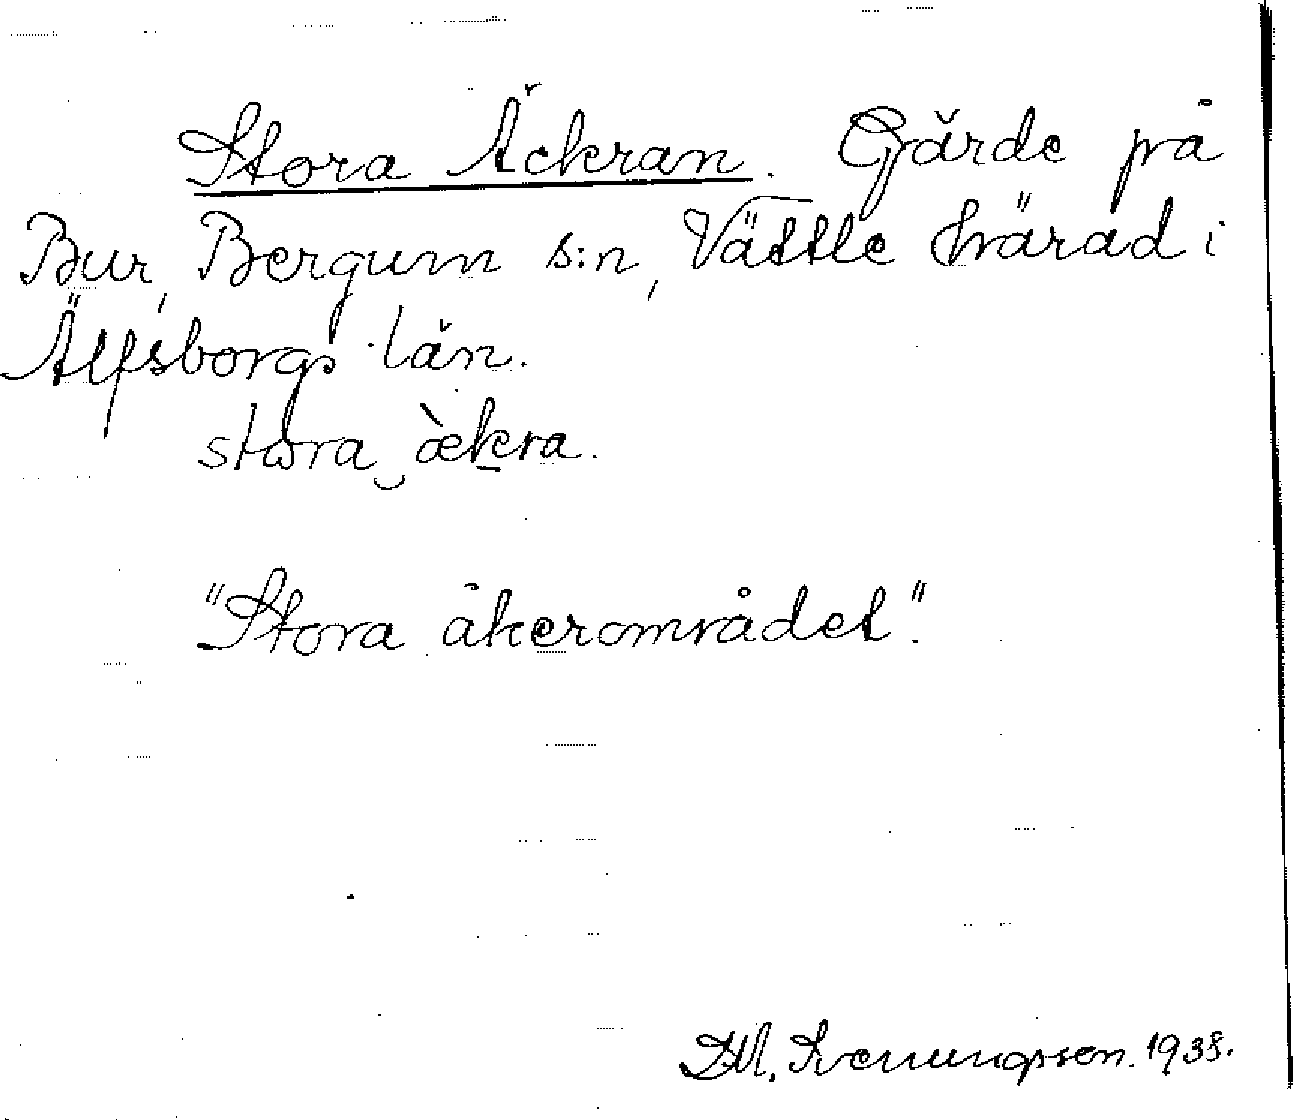 Stora Äckran. Gärde på
Bur, Bergum s:n, Vättle härad i
Älfsborgs län.
stora ‿ æ̀kra.
"Stora åkerområdet".
Svenungsson. 1938.